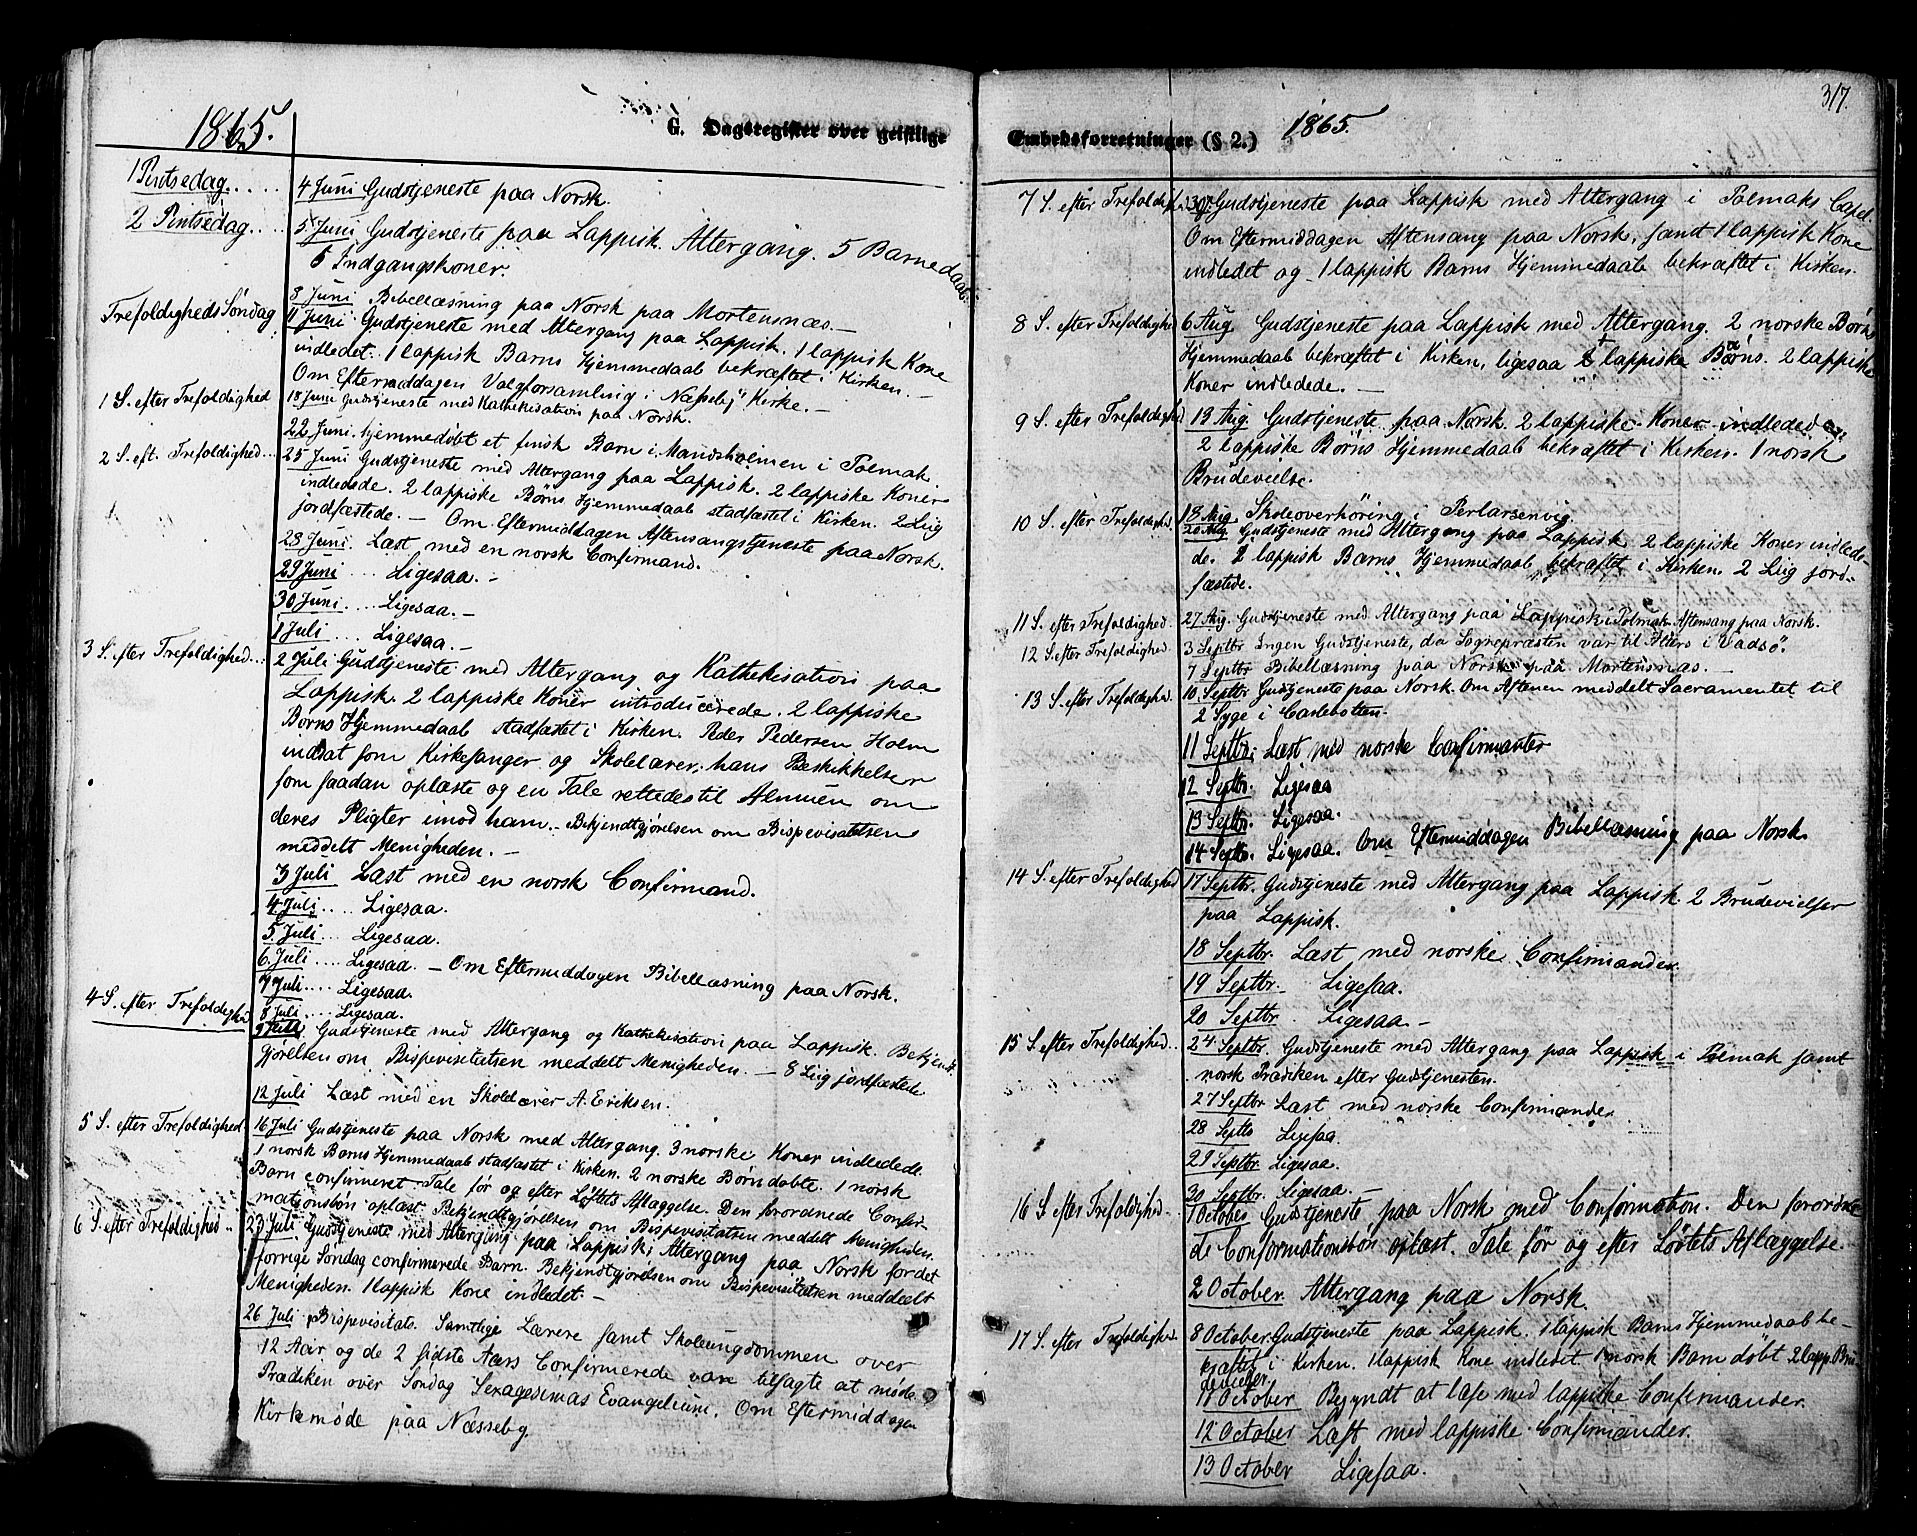 1865.
G. Dagsregister over geistlige
1 Pintsedag..... 4 Juni Gudstjeneste paa Norsk.
2 Pintsedag.... 5 Juni Gudstjeneste paa Lappisk. Altergang. 5 Barnedaab.
5 Indgangskoner.
8 Juni Bibellæsning paa Norsk paa Mortensnæs.—
Trefoldigheds Søndag 11 Juni Gudstjeneste med Altergang paa Lappisk. 1 lappisk Kone
indledet. 1 lappisk Barns Hjemmedaab bekræftet i Kirken.—
Om Eftermiddagen Valgforsamling i Næsseby Kirke.—
1 S. efter Trefoldighed 18 Juni Gudstjeneste med Kathekisation paa Norsk.
22 Juni. hjemmedøbt et finsk Barn i Mandsholmen i Polmak.
2 S. eft. Trefoldighed... 25 Juni Gudstjeneste med Altergang paa Lappisk. 2 lappiske Koner
indledede. 2 lappiske Børns Hjemmedaab stadfæstet i Kirken. 2 Liig
jordfæstede.— Om Eftermiddagen Aftensangstjeneste paa Norsk.
28 Juni. Læst med en norsk Confirmand.
29 Juni .... Ligesaa.—
30 Juni .... Ligesaa.—
1 Juli .... Ligesaa.—
3 S. efter Trefoldighed... 2 Juli Gudstjeneste med Altergang og Kathekisation paa
Lappisk. 2 lappiske Koner introducerede. 2 lappiske
Børns Hjemmedaab stadfæstet i Kirken. Peder Pedersen Holm
indsat som Kirkesanger og Skolelærer, hans Beskikkelse
som saadan oplæste og en Tale rettedes til Almuen om
deres Pligter imod ham.— Bekjendtgjørelsen om Bispevisitatsen
meddelt Menigheden.—
3 Juli Læst med en norsk Confirmand.
4 Juli .... Ligesaa.
5 Juli .... Ligesaa.
6 Juli .... Ligesaa.— Om Eftermiddagen Bibellæsning paa Norsk.
7 Juli .... Ligesaa.
8 Juli .... Ligesaa.
4 S. efter Trefoldighed 9 Juli Gudstjeneste med Altergang og Kathekisation paa Lappisk. Bekjendt-
gjørelsen om Bispevisitatsen meddelt Menigheden.— 8 Liig jordfæstede
12 Juli Læst med en Skolelærer A. Eriksen.
5 S. efter Trefoldighed 16 Juli Gudstjeneste paa Norsk med Altergang. 3 norske Koner indledede.
1 norsk Barns Hjemmedaab stadfæstet i Kirken. 2 norske Børn døbte. 1 norsk
Barn confirmeret. Tale før og efter Løftets Aflæggelse. Den forordnede Confir-
mationsbøn oplæst. Bekjendtgjørelsen om Bispevisitatsen meddelt Menigheden.
6 S. efter Trefoldighed .. 23 Juli Gudstjeneste med Altergang paa Lappisk; Altergang paa Norsk for det
forrige Søndag confirmerede Barn. Bekjendtgjørelsen om Bispevisitatsen meddeelt
Menigheden. 1 lappisk Kone indledet.—
26 Juli Bispevisitats. Samtlige Lærere samt Skoleungdommen over
12 Aar og de 2 sidste Aars Confirmerede vare tilsagte at møde.
Prædiken over Søndag Sexagesimas Evangelium. Om Eftermiddagen
Kirkemøde paa Næsseby.
317.
Embedsforretninger (§ 2.) 1865.
7 S. efter Trefoldighed 30 Gudstjeneste paa Lappisk med Altergang i Polmaks Capel.
Om Eftermiddagen Aftensang paa Norsk, samt 1 lappisk Kone
indledet og 1 lappisk Barns Hjemmedaab bekræftet i Kirken.
8 S. efter Trefoldighed 6 Aug. Gudstjeneste paa Lappisk med Altergang. 2 norske Børns
Hjemmedaab bekræftet i Kirken, ligesaa 1 lappiske Barns. 2 lappiske
Koner indledede.—
9 S. efter Trefoldighed 13 Aug. Gudstjeneste paa Norsk. 2 lappiske Koner indledede.
2 lappiske Børns Hjemmedaab bekræftet i Kirken. 1 norsk
Brudevielse.
18 Aug. Skoleoverhøring i Perlarsenvig.
10 S. efter Trefoldighed 20 Aug. Gudstjeneste med Altergang paa Lappisk. 2 lappiske Koner indlede-
de. 1 lappisk Barns Hjemmedaab bekræftet i Kirken. 2 Liig jord-
fæstede.
11 S. efter Trefoldighed 27 Aug. Gudstjeneste med Altergang paa Lappisk i Polmak. Aftensang paa Norsk.
12 S. efter Trefoldighed. 3 Septbr Ingen Gudstjeneste, da Sognepræsten var til Alters i Vadsø.
7 Septbr Bibellæsning paa Norsk paa Mortensnæs.—
13 S. efter Trefoldighed. 10 Septbr Gudstjeneste paa Norsk. Om Aftenen meddelt Sacramentet til
2 Syge i Carlebotten.
11 Septbr. Læst med norske Confirmanter
12 Septbr. Ligesaa
13 Septbr. Ligesaa.
14 Septbr. Ligesaa. Om Eftermiddagen Bibellæsning paa Norsk
14 S. efter Trefoldighed 17 Septbr. Gudstjeneste med Altergang paa Lappisk. 2 Brudevielser
paa Lappisk.
18 Septbr. Læst med norske Confirmander.
19 Septbr. Ligesaa.
20 Septbr. Ligesaa.—
15 S. efter Trefoldighed.. 24 Septbr. Gudstjeneste med Altergang paa Lappisk i Polmak samt
norsk Prædiken efter Gudstjenesten.
27 Septbr Læst med norske Confirmander.
28 Septb Ligesaa.
29 Septbr. Ligesaa.
30 Septbr. Ligesaa.—
16 S efter Trefoldighed.. 1 October Gudstjeneste paa Norsk med Confirmation. Den forordne-
de Confirmationsbøn oplæst. Tale før og efter Løftets Aflæggelse.
2 October. Altergang paa Norsk.
17 S. efter Trefoldighed 8 October. Gudstjeneste paa Lappisk. 1 lappisk Barns Hjemmedaab be-
kræftet i Kirken. 1 lappisk Kone indledet. 1 norsk Barn døbt. 2 lapp. Bru-
devielser.
11 October Begyndt at læse med lappiske Confirmander.
12 October Læst med lappiske Confirmander.
13 October Ligesaa.